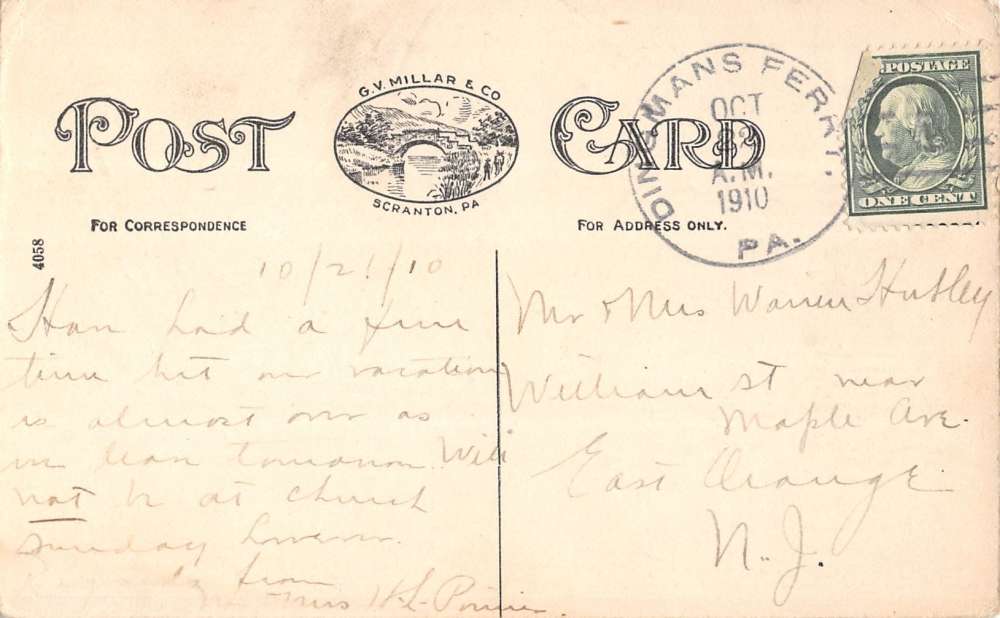 G.V. MILLAR & CO
SCRANTON, PA
POST CARD
FOR CORRESPONDENCE
FOR ADDRESS ONLY.
4058
DINGMANS FERRY,
OCT
A.M.
1910
PA.
POSTAGE
ONE CENT
10/21/10
Have had a fine
time but our vacation
is almost over as
we leave tomorrow. Will
not be at church
Sunday however.
from
Mrs
Mr & Mrs Warren Hutley
William st near
Maple Ave.
East Orange
N.J.